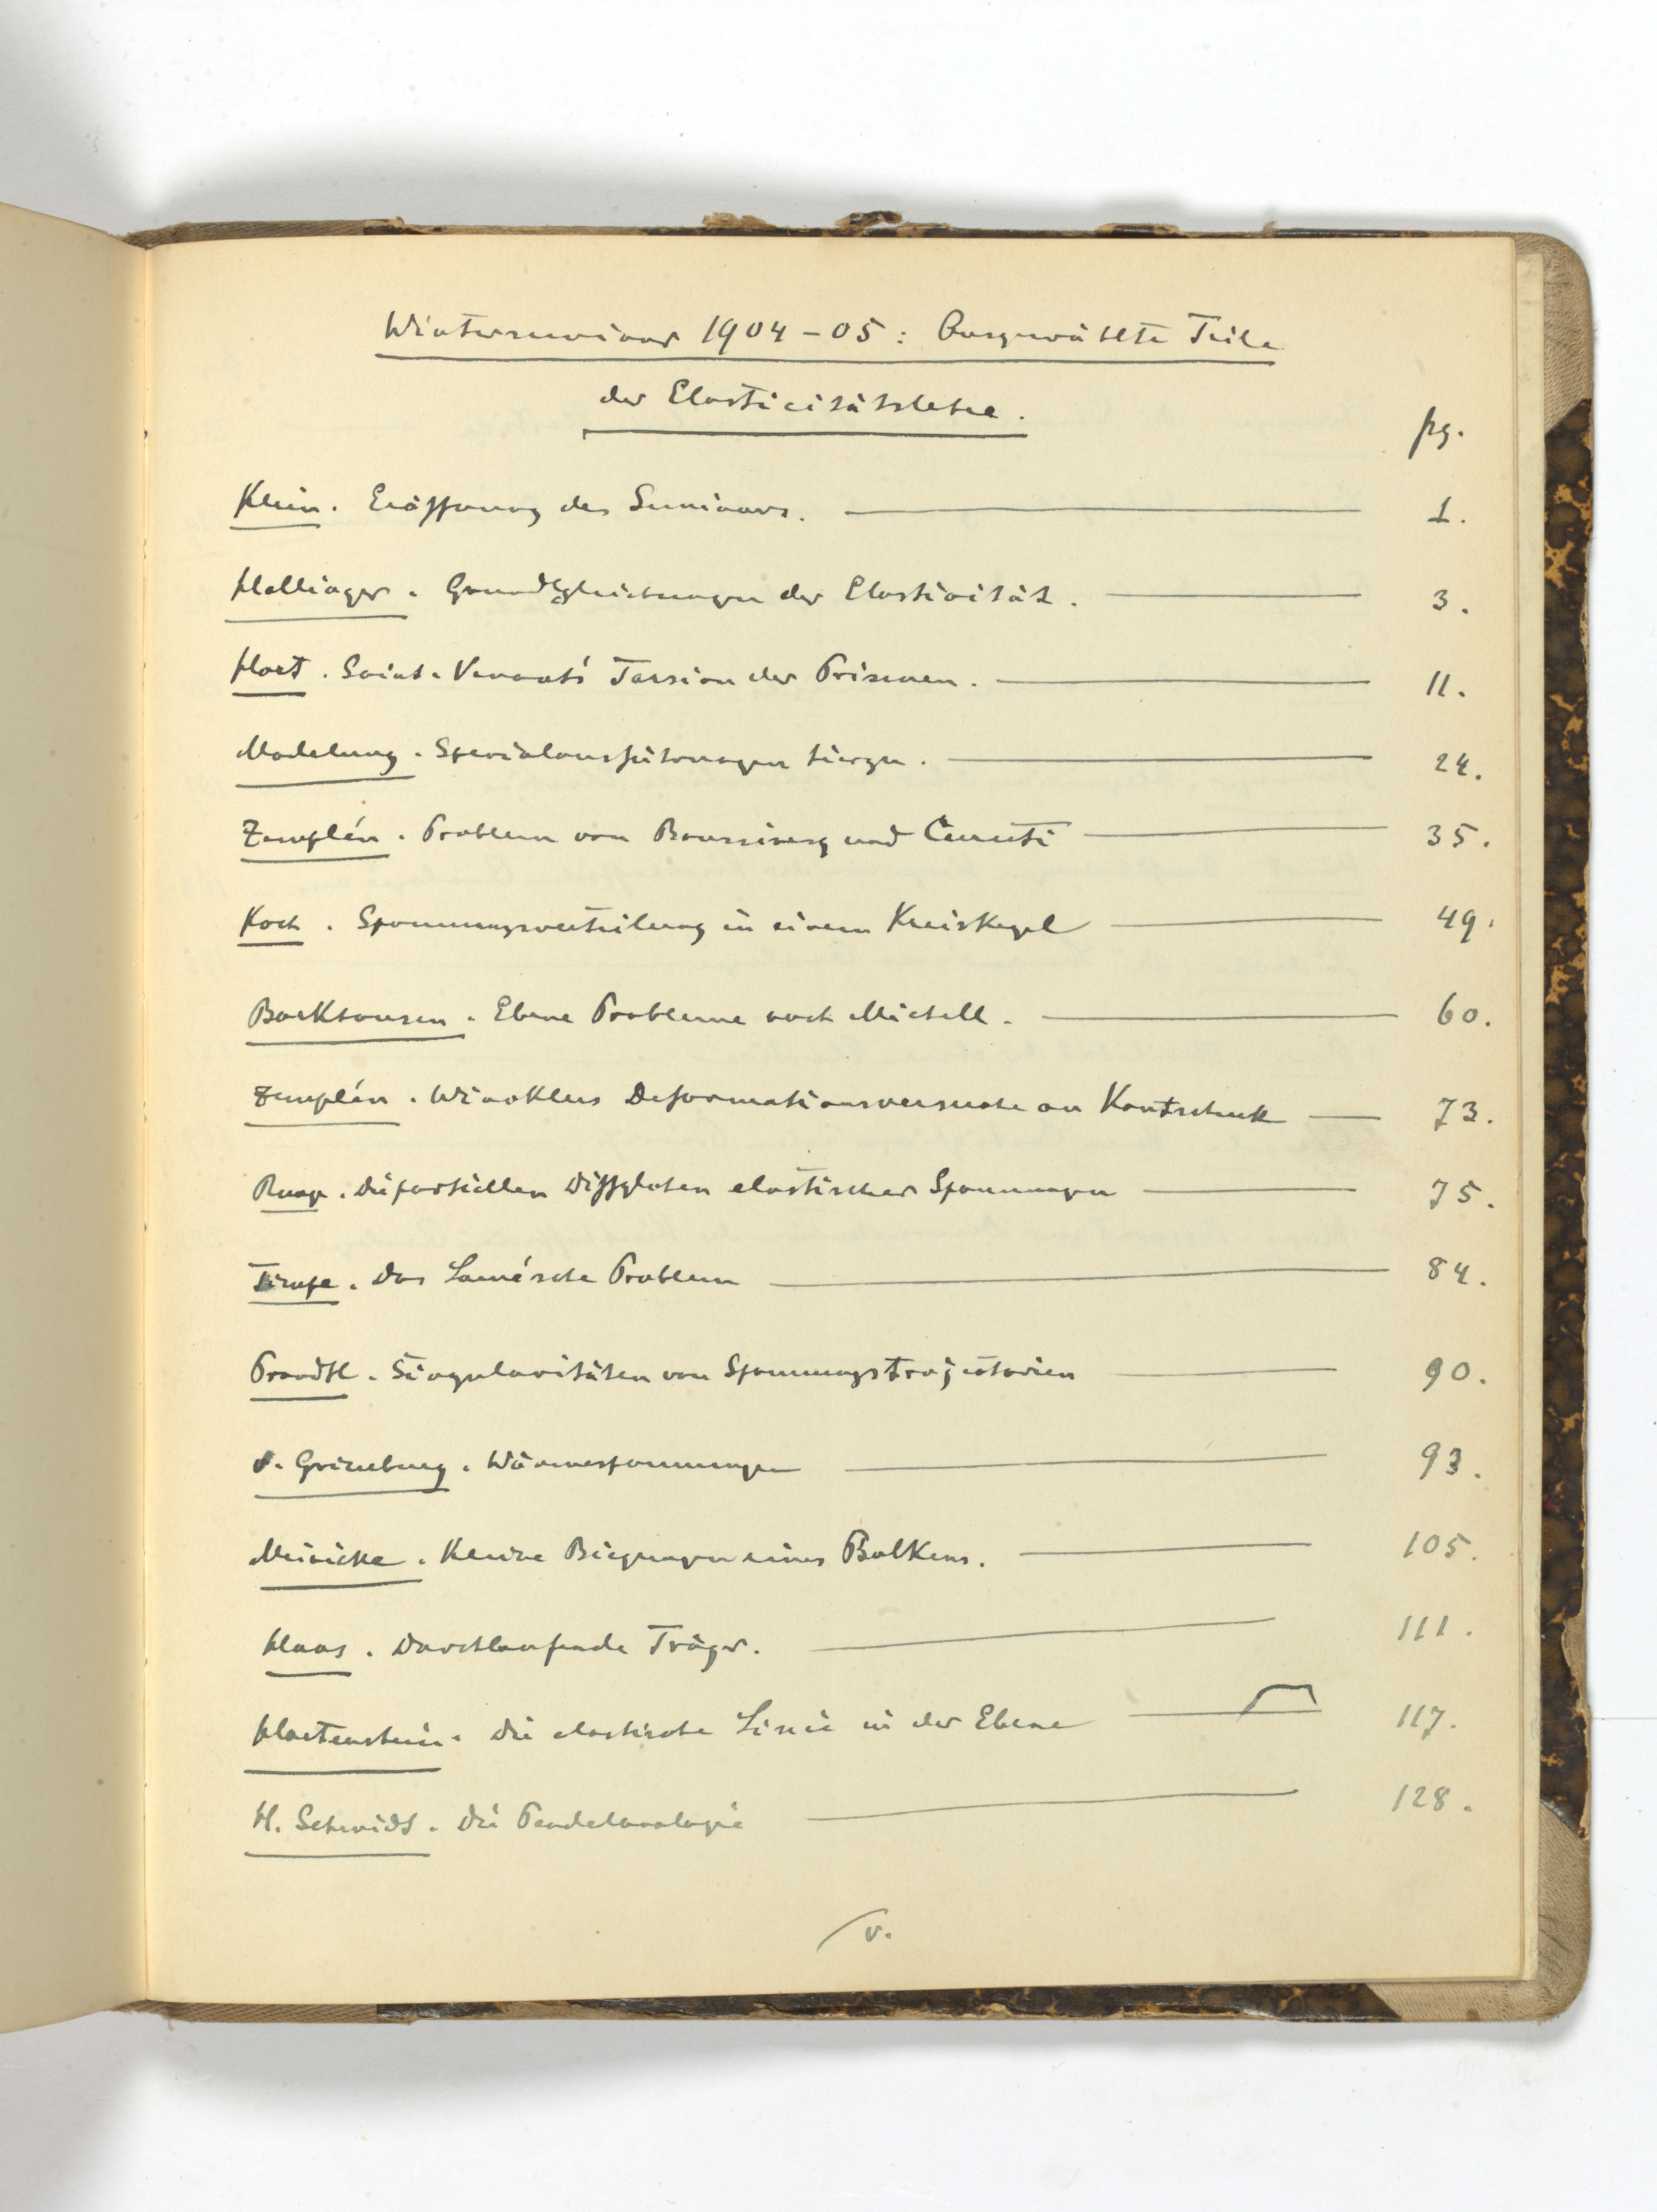 Winterseminar 1904-05: Ausgewählte Teile
der Elasticitätslehre.
pg.
Klein. Eröffnung des Seminars. 1.
Hellinger. Grundgleichungen der Elasticität. 3.
Hort. Saint-Venant's Torsion der Prismen. 11.
Madelung. Specialausführungen hierzu. 24.
Zemplén. Problem von Boussinesq und Cerruti 35.
Koch. Spannungsverteilung in einem Kreiskegel 49.
Backhausen. Ebene Probleme nach Michell. 60.
Zemplén. Winklers Deformationsversuche an Kautschuk 73.
Runge. Die partiellen Diffglchen elastischer Spannungen 75.
Timpe. Das Lamé'sche Problem 84.
Prandtl. Singularitäten von Spannungstrajectorien 90.
v. Grünberg. Wärmespannungen 93.
Meinicke. Kleine Biegungen eines Balkens. 105.
Haas. Durchlaufende Träger. 111.
Hartenstein. Die elastische Linie in der Ebene 117.
H. Schmidt. Die Pendelanalogie 128.
v.